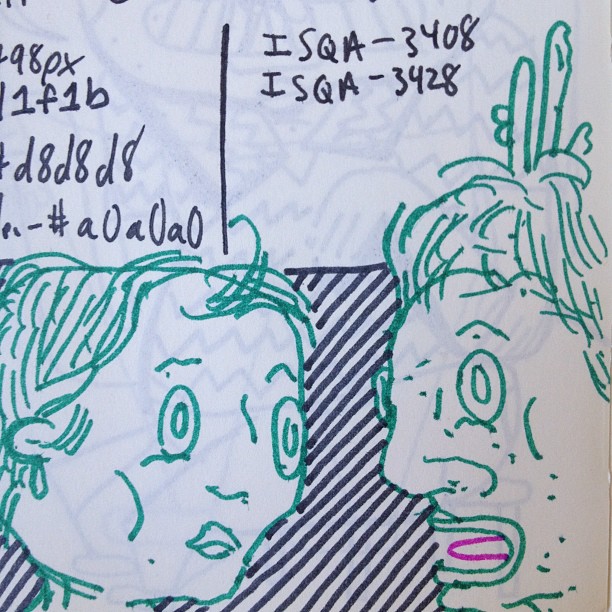 98px
1f1b
#d8d8d8
-#a0a0a0
ISQA-3408
ISQA-3428